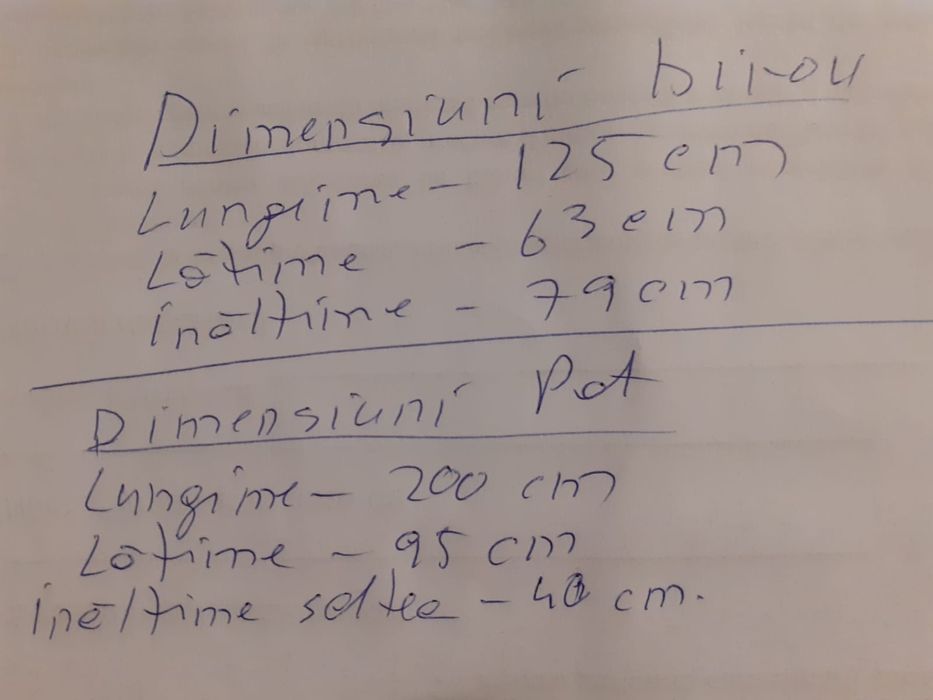 Dimensiuni birou
Lungime - 125 cm
Lățime - 63 cm
înălțime - 79 cm
Dimensiuni Pat
Lungime - 200 cm
Lățime - 95 cm
înălțime saltea - cm.